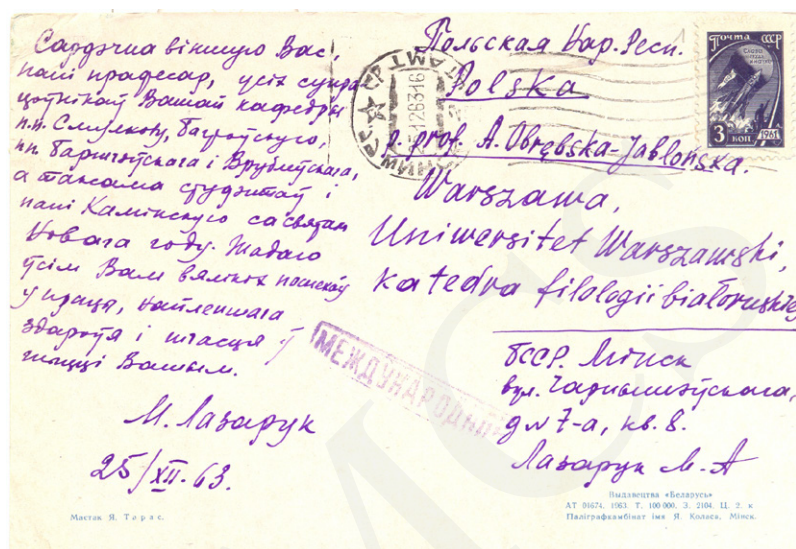 Сардэчна віншую Вас,
пані прафесар, усіх супра
цоўнікаў Вашай кафедры
п.п. Смулкову, Баброўскую,
пп. Баршчэўскага і Врублеўскага,
а таксама студэнтаў і
пані Камінскую са святам
Новага году. Жадаю
ўсім Вам вялікіх поспехаў
у працы, найлепшага
здароўя і шчасця ў
жыцці Вашым.
М. Лазарук
25/XII. 63.
Мастак Я. Тарас.
Польская Нар. Респ.
Polska
p. prof. A. Obrębska-Jabłońska.
Warszawa,
Uniwersitet Warszawski,
Katedra filologii białoruskiej
ПОЧТА СССР
3 КОП. 1961
МЕЖДУНАРОДНОЕ
БССР. Мінск
вул. Чарнышэўскага,
д. 7-а, кв. 8.
Лазарук М. А
Выдавецтва «Беларусь»
АТ 01674. 1963. Т. 100 000. З. 2104. Ц. 2. к
Паліграфкамбінат імя Я. Коласа, Мінск.